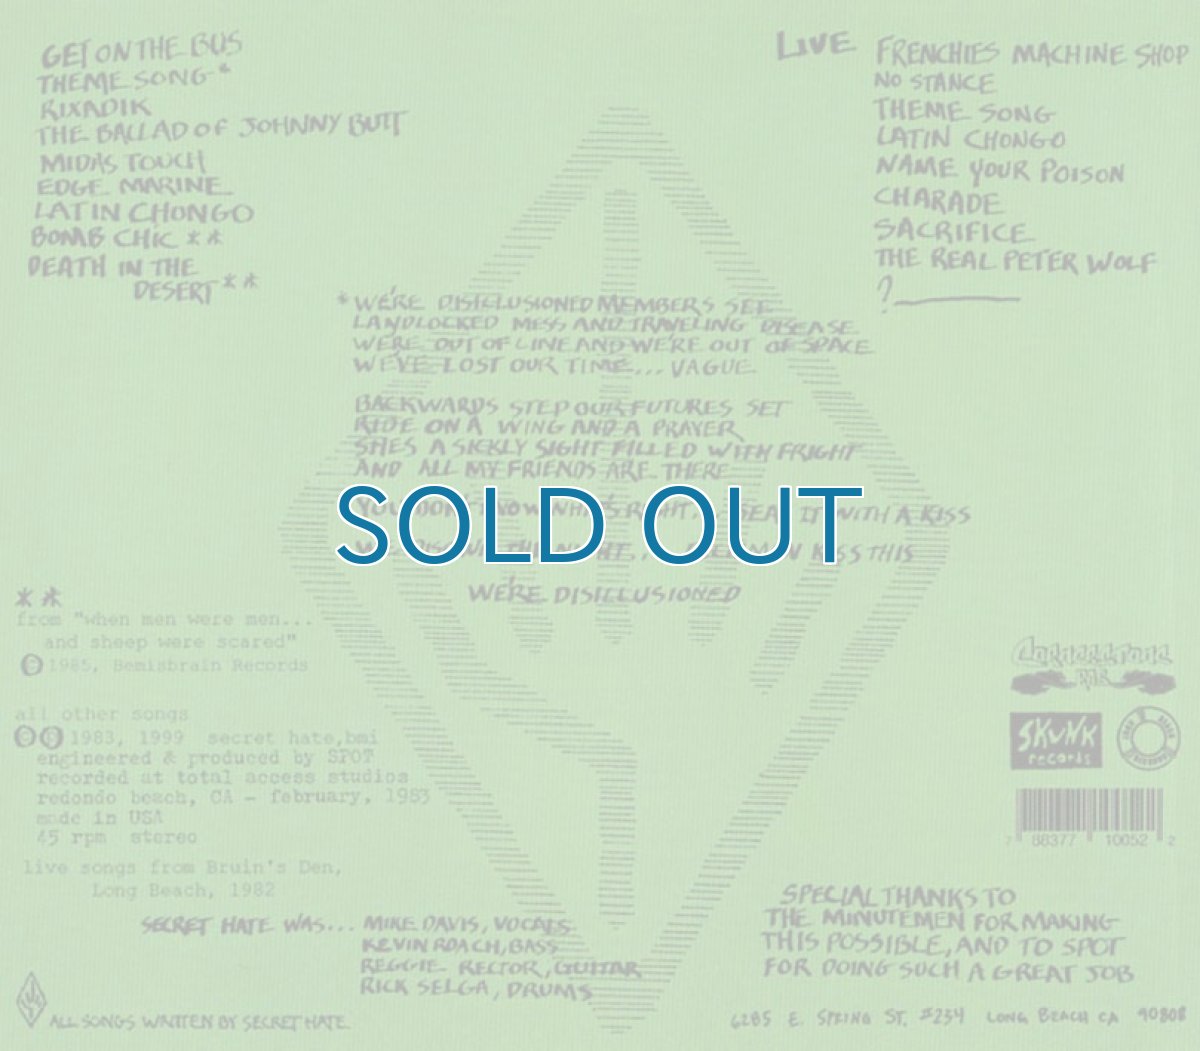 GET ON THE BUS
THEME SONG *
RIXADIK
THE BALLAD OF JOHNNY BUTT
MIDAS TOUCH
EDGE MARINE
LATIN CHONGO
BOMB CHIC * *
DEATH IN THE
DESERT * *
LIVE
FRENCHIES MACHINE SHOP
NO STANCE
THEME SONG
LATIN CHONGO
NAME YOUR POISON
CHARADE
SACRIFICE
THE REAL PETER WOLF
?
* WE'RE DISILLUSIONED MEMBERS SEE
LANDLOCKED MESS AND TRAVELING DISEASE
WE'RE OUT OF LINE AND WE'RE OUT OF SPACE
WE'VE LOST OUR TIME... VAGUE
BACKWARDS STEP OUR FUTURES SET
RIDE ON A WING AND A PRAYER
SHES A SICKLY SIGHT FILLED WITH FRIGHT
AND ALL MY FRIENDS ARE THERE
YOU DON'T KNOW WHAT'S RIGHT... SEAL IT WITH A KISS
SOLD OUT
KISS THIS
WE'RE DISILLUSIONED
* *
from "when men were men...
and sheep were scared"
Ⓟ 1985, Bemisbrain Records
all other songs
©Ⓟ 1983, 1999 secret hate, bmi
engineered & produced by SPOT
recorded at total access studios
redondo beach, CA - february, 1983
made in USA
45 rpm stereo
live songs from Bruin's Den,
Long Beach, 1982
SECRET HATE WAS... MIKE DAVIS, VOCALS
KEVIN ROACH, BASS
REGGIE RECTOR, GUITAR
RICK SELGA, DRUMS
ALL SONGS WRITTEN BY SECRET HATE
SKUNK
records
7 88377 10052 2
SPECIAL THANKS TO
THE MINUTEMEN FOR MAKING
THIS POSSIBLE, AND TO SPOT
FOR DOING SUCH A GREAT JOB
6285 E. SPRING ST. #234 LONG BEACH CA 90808